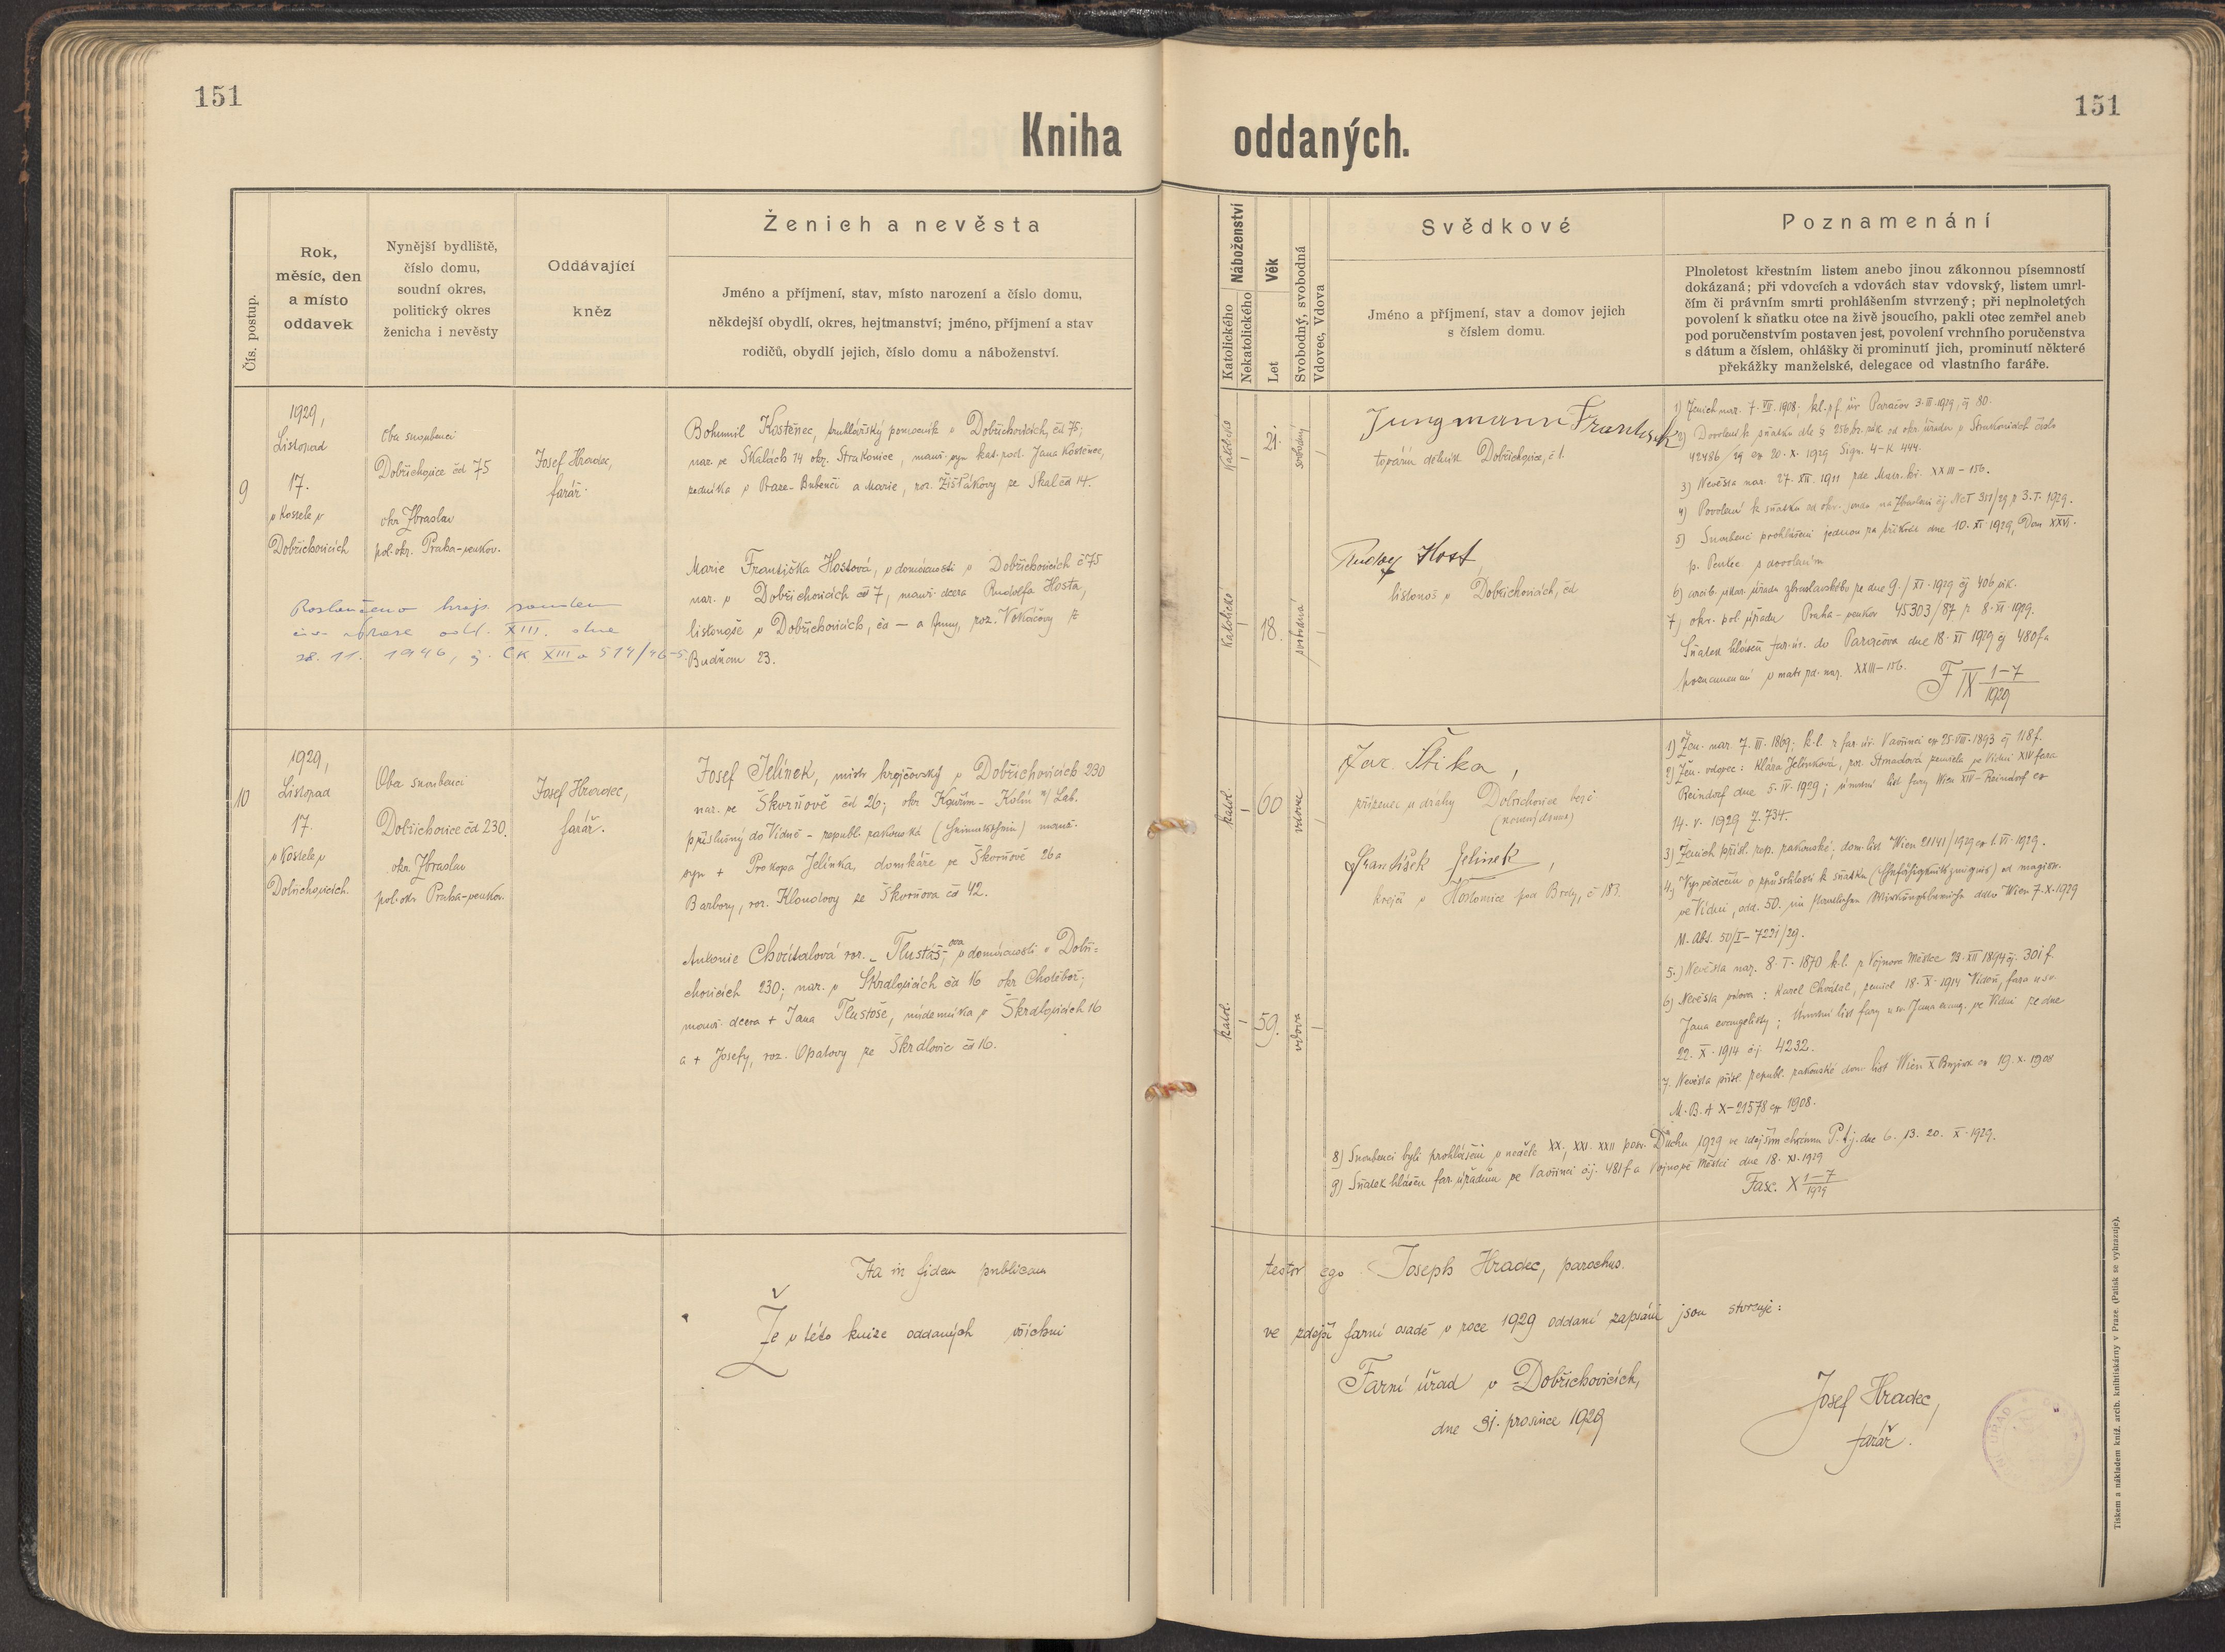 151
151
Kniha oddaných.
Čís. postup.
Rok,
měsíc, den
a místo
oddavek
Nynější bydliště,
číslo domu,
soudní okres,
politický okres
ženicha i nevěsty
Oddávající
kněz
Ženich a nevěsta
Jméno a příjmení, stav, místo narození a číslo domu,
někdejší obydlí, okres, hejtmanství; jméno, příjmení a stav
rodičů, obydlí jejich, číslo domu a náboženství.
Náboženství
Katolického
Nekatolického
Věk
Let
Svobodný, svobodná
Vdovec, Vdova
Svědkové
Jméno a příjmení, stav a domov jejich
s číslem domu.
Poznamenání
Plnoletost křestním listem anebo jinou zákonnou písemností
dokázaná; při vdovcích a vdovách stav vdovský, listem umrl-
čím či právním smrti prohlášením stvrzený; při neplnoletých
povolení k sňatku otce na živě jsoucího, pakli otec zemřel aneb
pod poručenstvím postaven jest, povolení vrchního poručenstva
s dátum a číslem, ohlášky či prominutí jich, prominutí některé
překážky manželské, delegace od vlastního faráře.
9
1929,
Listopad
17.
v kostele v
Dobřichovicích
Oba snoubenci
Dobřichovice čd 75
okr Zbraslav
pol. okr. Praha-venkov.
Josef Hradec,
farář.
Bohumil Kostěnec, truhlářský pomocník v Dobřichovicích, čd 75;
nar. ve Skalách 14 okr. Strakonice, manž. syn kat. rod. Jana Kostěnce,
zedníka v Praze-Bubenči a Marie, roz. Žišťákovy ze Skal čd 14.
Marie Františka Hostová, v domácnosti v Dobřichovicích č 75
nar. v Dobřichovicích čd 7, manž. dcera Rudolfa Hosta,
listonoše v Dobřichovicích, čd — a Anny, roz. Vokáčovy z
Budňan 23.
Rozloučeno kraj. soudem
civ. v Praze odd. XIII. dne
28. 11. 1946, č. CK XIII a 514/46-5.
Katolické
21.
svobodný
Katolické
18.
svobodná
Jungmann Frantisek
tovární dělník Dobřichovice, č 1.
Rudolf Host,
listonoš v Dobřichovicích, čd
1) Ženich nar. 7. VII. 1908; kl. p f. úr Paračov 3. III. 1929, čj 80.
2) Dovolení k sňatku dle § 256 br. zák. od okr. úřadu v Strakonicích číslo
42486/29 ex 20. X. 1929 Sign. 4-K 444.
3) Nevěsta nar. 27. XII. 1911 zde Matr. kř. XXIII-156.
4) Povolení k sňatku od okr. soudu na Zbraslavi čj NcI 311/29 z 3. I. 1929.
5) Snoubenci prohlášeni jednou za třikrát dne 10. XI 1929, Dom XXVI.
p. Pentec s dovolením
6) arcib. vikar. úřadu zbraslavského ze dne 9./XI. 1929 čj 406 vik.
7) okr. pol. úřadu Praha-venkov 45303/87 z 8. XI 1929.
Sňatek hlášen far. úr. do Paračova dne 18. XI 1929 čj 480 f a
poznamenání v matr zd. nar. XXIII-156.
F IX 1-7/1929
10
1929,
Listopad
17.
v kostele v
Dobřichovicích.
Oba snoubenci
Dobřichovice čd 230.
okr. Zbraslav
pol. okr. Praha-venkov.
Josef Hradec,
farář.
Josef Jelínek, mistr krejčovský v Dobřichovicích 230
nar. ve Škvrňově čd 26; okr Kouřim - Kolín n/ Lab.
příslušný do Vídně - republ. rakouská manž.
syn + Prokopa Jelínka, domkáře ve Škvrňově 26 a
Barbory, roz. Kloudovy ze Škvrňova čd 42.
Antonie Chvátalová roz. Tlustáš-ova, v domácnosti v Dobři=
chovicích 230; nar. v Škrdlovicích čd 16 okr Chotěboř,
manž. dcera + Jana Tlustoše, v Škrdlovicích 16
a + Josefy, roz. Opatovy ze Škrdlovic čd 16.
katol.
60
vdovec
katol.
59.
vdova
Jar. Štika,
zřízenec u dráhy Dobřichovice beze č
(novou/domu)
František Jelinek,
krejčí v Hostomice pod Brdy, č 183.
1) Žen. nar. 7. III. 1869; k. l. z far. úř. Vavřinci ex 25. VIII. 1893 čj 118 f.
2) Žen. vdovec: Klára Jelínková, roz. Strnadová zemřela ve Vídni XIV fara
Reindorf dne 5. IV. 1929; úmrtní list fary Wien XIV-Reindorf ex
14. V. 1929 Z. 734.
3) Ženich přísl. rep. rakouské, dom. list Wien 21141/1929 ex 1. VI. 1929.
4) Vysvědčení o způsobilosti k sňatku (Ehefähigkeitszeugnis) od magistr.
ve Vídni, odd. 50. im staatlichen Wirkungsbereiche ddto Wien 7. X. 1929
M. Abt. 50/I-7231/29.
5.) Nevěsta nar. 8. I. 1870 k. l. z Vojnova Městce 23. XII 1894 čj. 301 f.
6) Nevěsta vdova: Karel Chvátal, zemřel 18. X. 1914 Vídeň, fara u sv.
Jana evangelisty; Úmrtní list fary u sv. Jana evang. ve Vídni ze dne
22. X. 1914 čj. 4232.
7. Nevěsta přísl. republ. rakouské dom. list Wien X Bezirk ex 19. X. 1908
M. B. A X-21578 ex 1908.
8) Snoubenci byli prohlášeni v neděle XX, XXI. XXII posv. Duchu 1929 ve zdejším chrámu P. t. j. dne 6. 13. 20. X. 1929.
9) Sňatek hlášen far. úřadům ve Vavřinci čj. 481 f a Vojnově Městci dne 18. XI. 1929
Fasc. X 1-7/1929
Ita in fidem publicam testor ego Joseph Hradec, parochus.
Že v této knize oddaných všichni ve zdejší farní osadě v roce 1929 oddaní zapsáni jsou stvrzuje:
Farní úřad v Dobřichovicích,
dne 31. prosince 1929
Josef Hradec,
farář.
Tiskem a nákladem kníž. arcib. knihtiskárny v Praze. (Patisk se vyhrazuje).